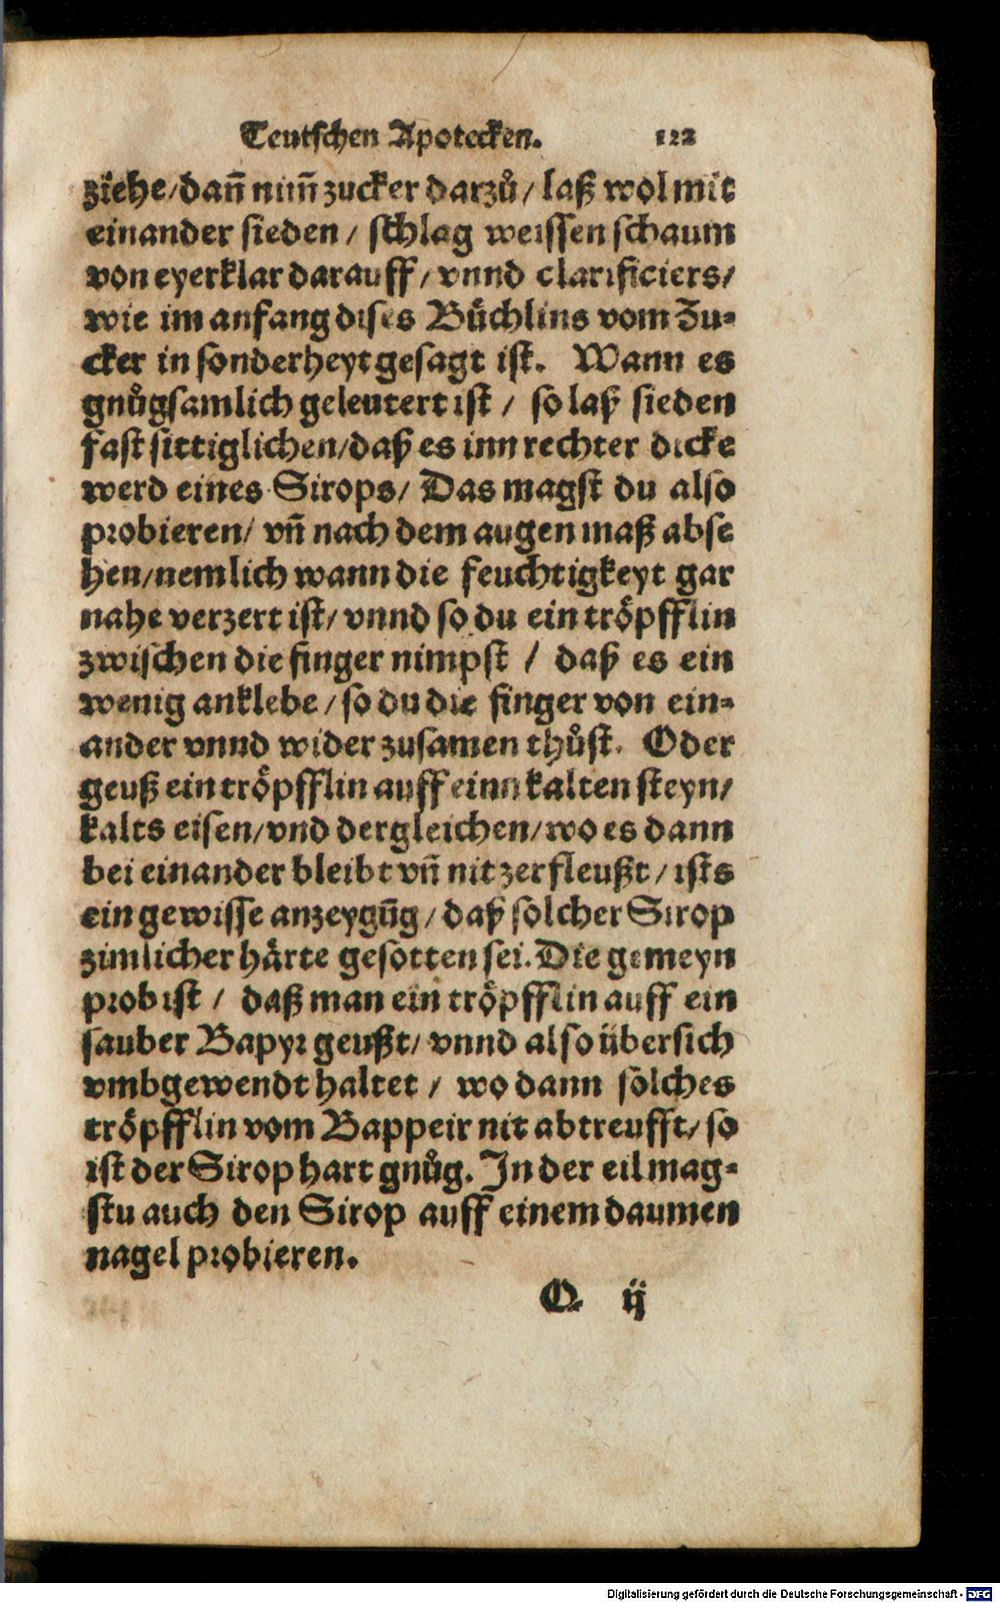 Teutschen Apotecken. 122
ziehe/ dañ nim̃ zucker darzů/ laß wol mit
einander sieden / schlag weissen schaum
von eyerklar darauff/ vnnd clarificiers/
wie im anfang dises Bůchlins vom Zu-
cker in sonderheyt gesagt ist. Wann es
gnůgsamlich geleutert ist / so laß sieden
fast sittiglichen/ daß es inn rechter dicke
werd eines Sirops/ Das magst du also
probieren/ vñ nach dem augen maß abse
hen/ nemlich wann die feuchtigkeyt gar
nahe verzert ist/ vnnd so du ein tröpfflin
zwischen die finger nimpst / daß es ein
wenig anklebe / so du die finger von ein-
ander vnnd wider zusamen thůst. Oder
geuß ein tröpfflin auff einn kalten steyn/
kalts eisen/ vnd dergleichen/ wo es dann
bei einander bleibt vñ nit zerfleußt / ists
ein gewisse anzeygũg / daß solcher Sirop
zimlicher härte gesotten sei. Die gemeyn
prob ist / daß man ein tröpfflin auff ein
sauber Bapyr geußt/ vnnd also übersich
vmbgewendt haltet / wo dann solches
tröpfflin vom Bappeir nit abtreufft/ so
ist der Sirop hart gnůg. In der eil mag-
stu auch den Sirop auff einem daumen
nagel probieren.
Q ij
Digitalisierung gefördert durch die Deutsche Forschungsgemeinschaft - DFG